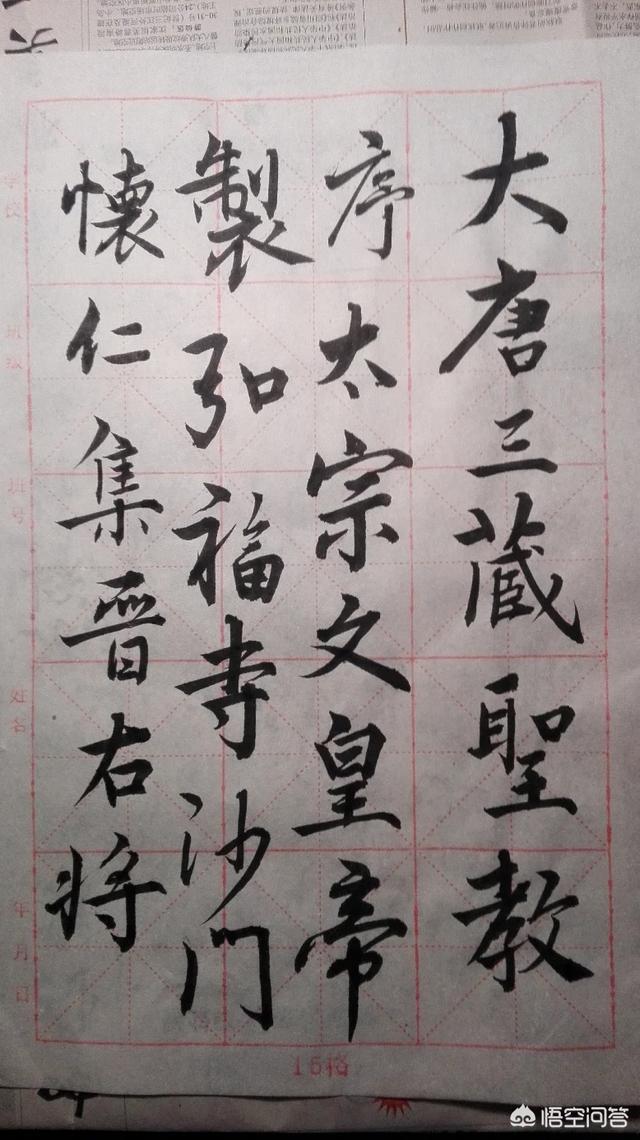 大唐三藏聖教
序太宗文皇帝
製弘福寺沙門
懷仁集晉右將
学校
班级
班号
姓名
年月日
16格
悟空问答